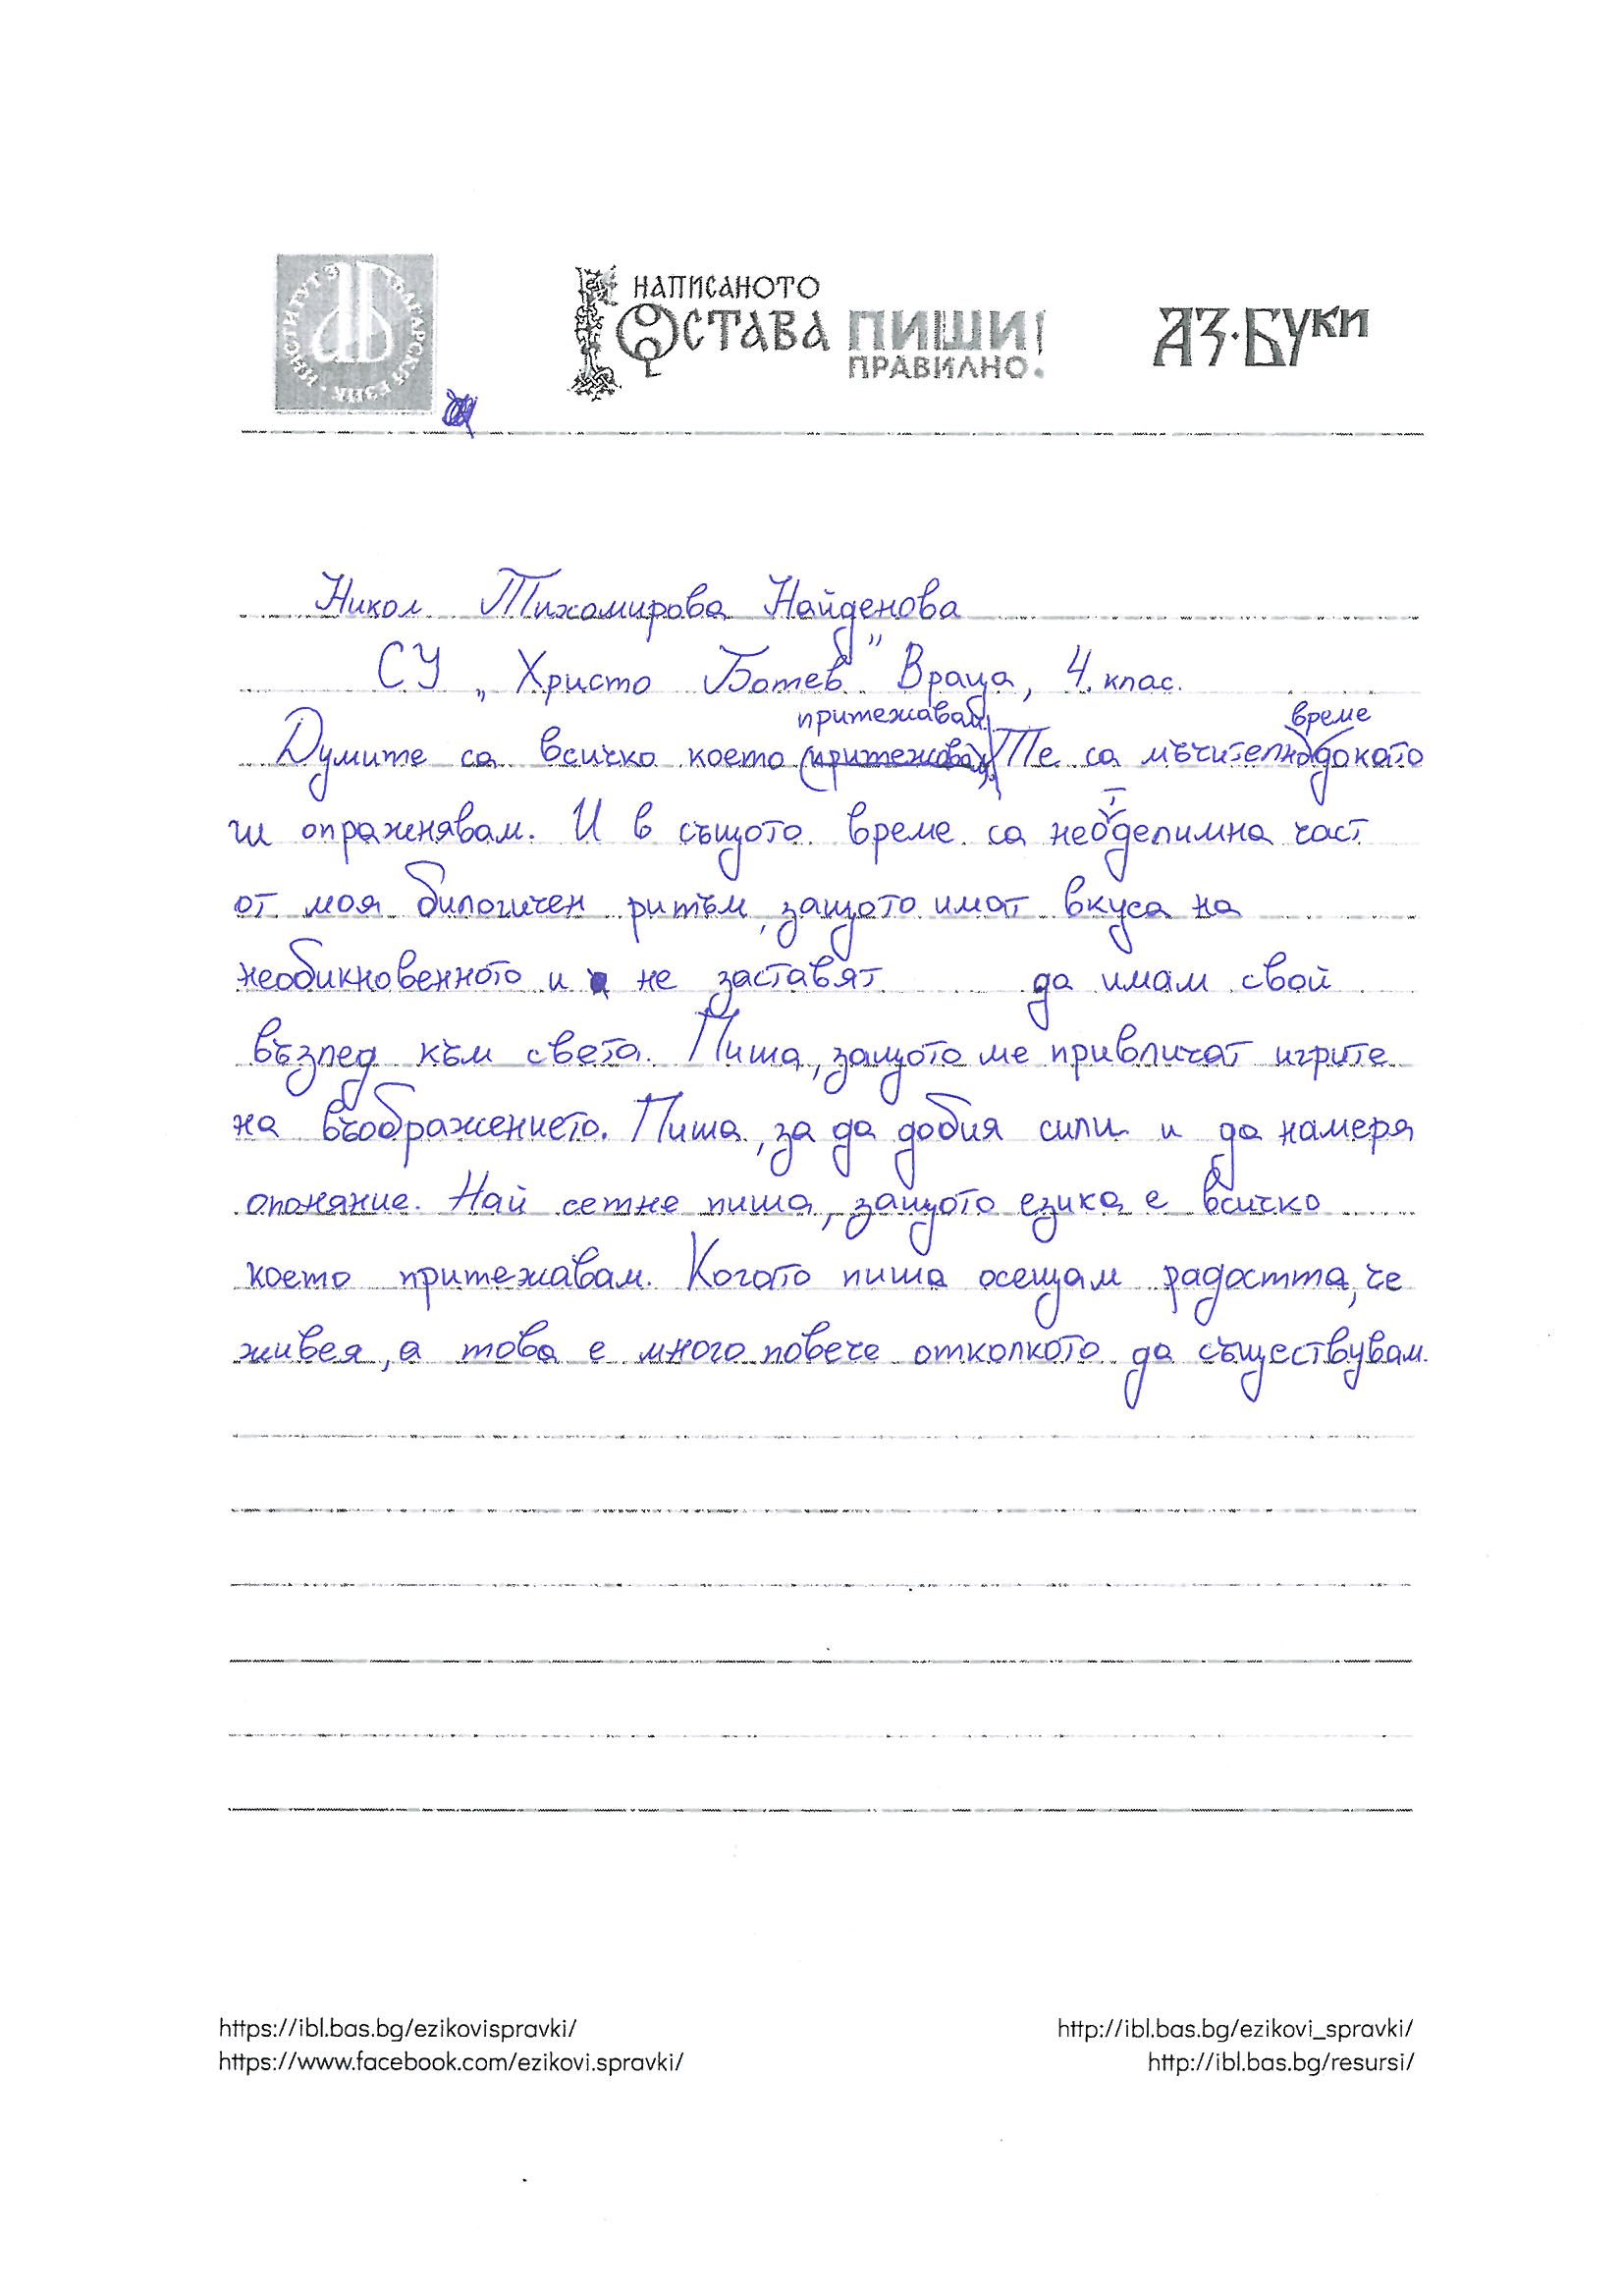 ИНСТИТУТ ЗА БЪЛГАРСКИ ЕЗИК
НАПИСАНОТО
ОСТАВА ПИШИ!
ПРАВИЛНО.
АЗ·БУКИ
Никол Тихомирова Найденова
СУ „Христо Ботев" Враца, 4. клас.
притежавам. време
Думите са всичко което (притежавам) Те са мъчително докато
ги опражнявам. И в същото време са неотделимна част
от моя билогичен ритъм, защото имат вкуса на
необикновенното и не заставят да имам свой
възлед към света. Пиша, защото ме привличат игрите
на въображението. Пиша, за да добия сили и да намеря
опоняние. Най сетне пиша, защото езика е всичко
което притежавам. Когато пиша осещам радостта, че
живея, а това е много повече отколкото да съществувам.
https://ibl.bas.bg/ezikovispravki/ http://ibl.bas.bg/ezikovi_spravki/
https://www.facebook.com/ezikovi.spravki/ http://ibl.bas.bg/resursi/